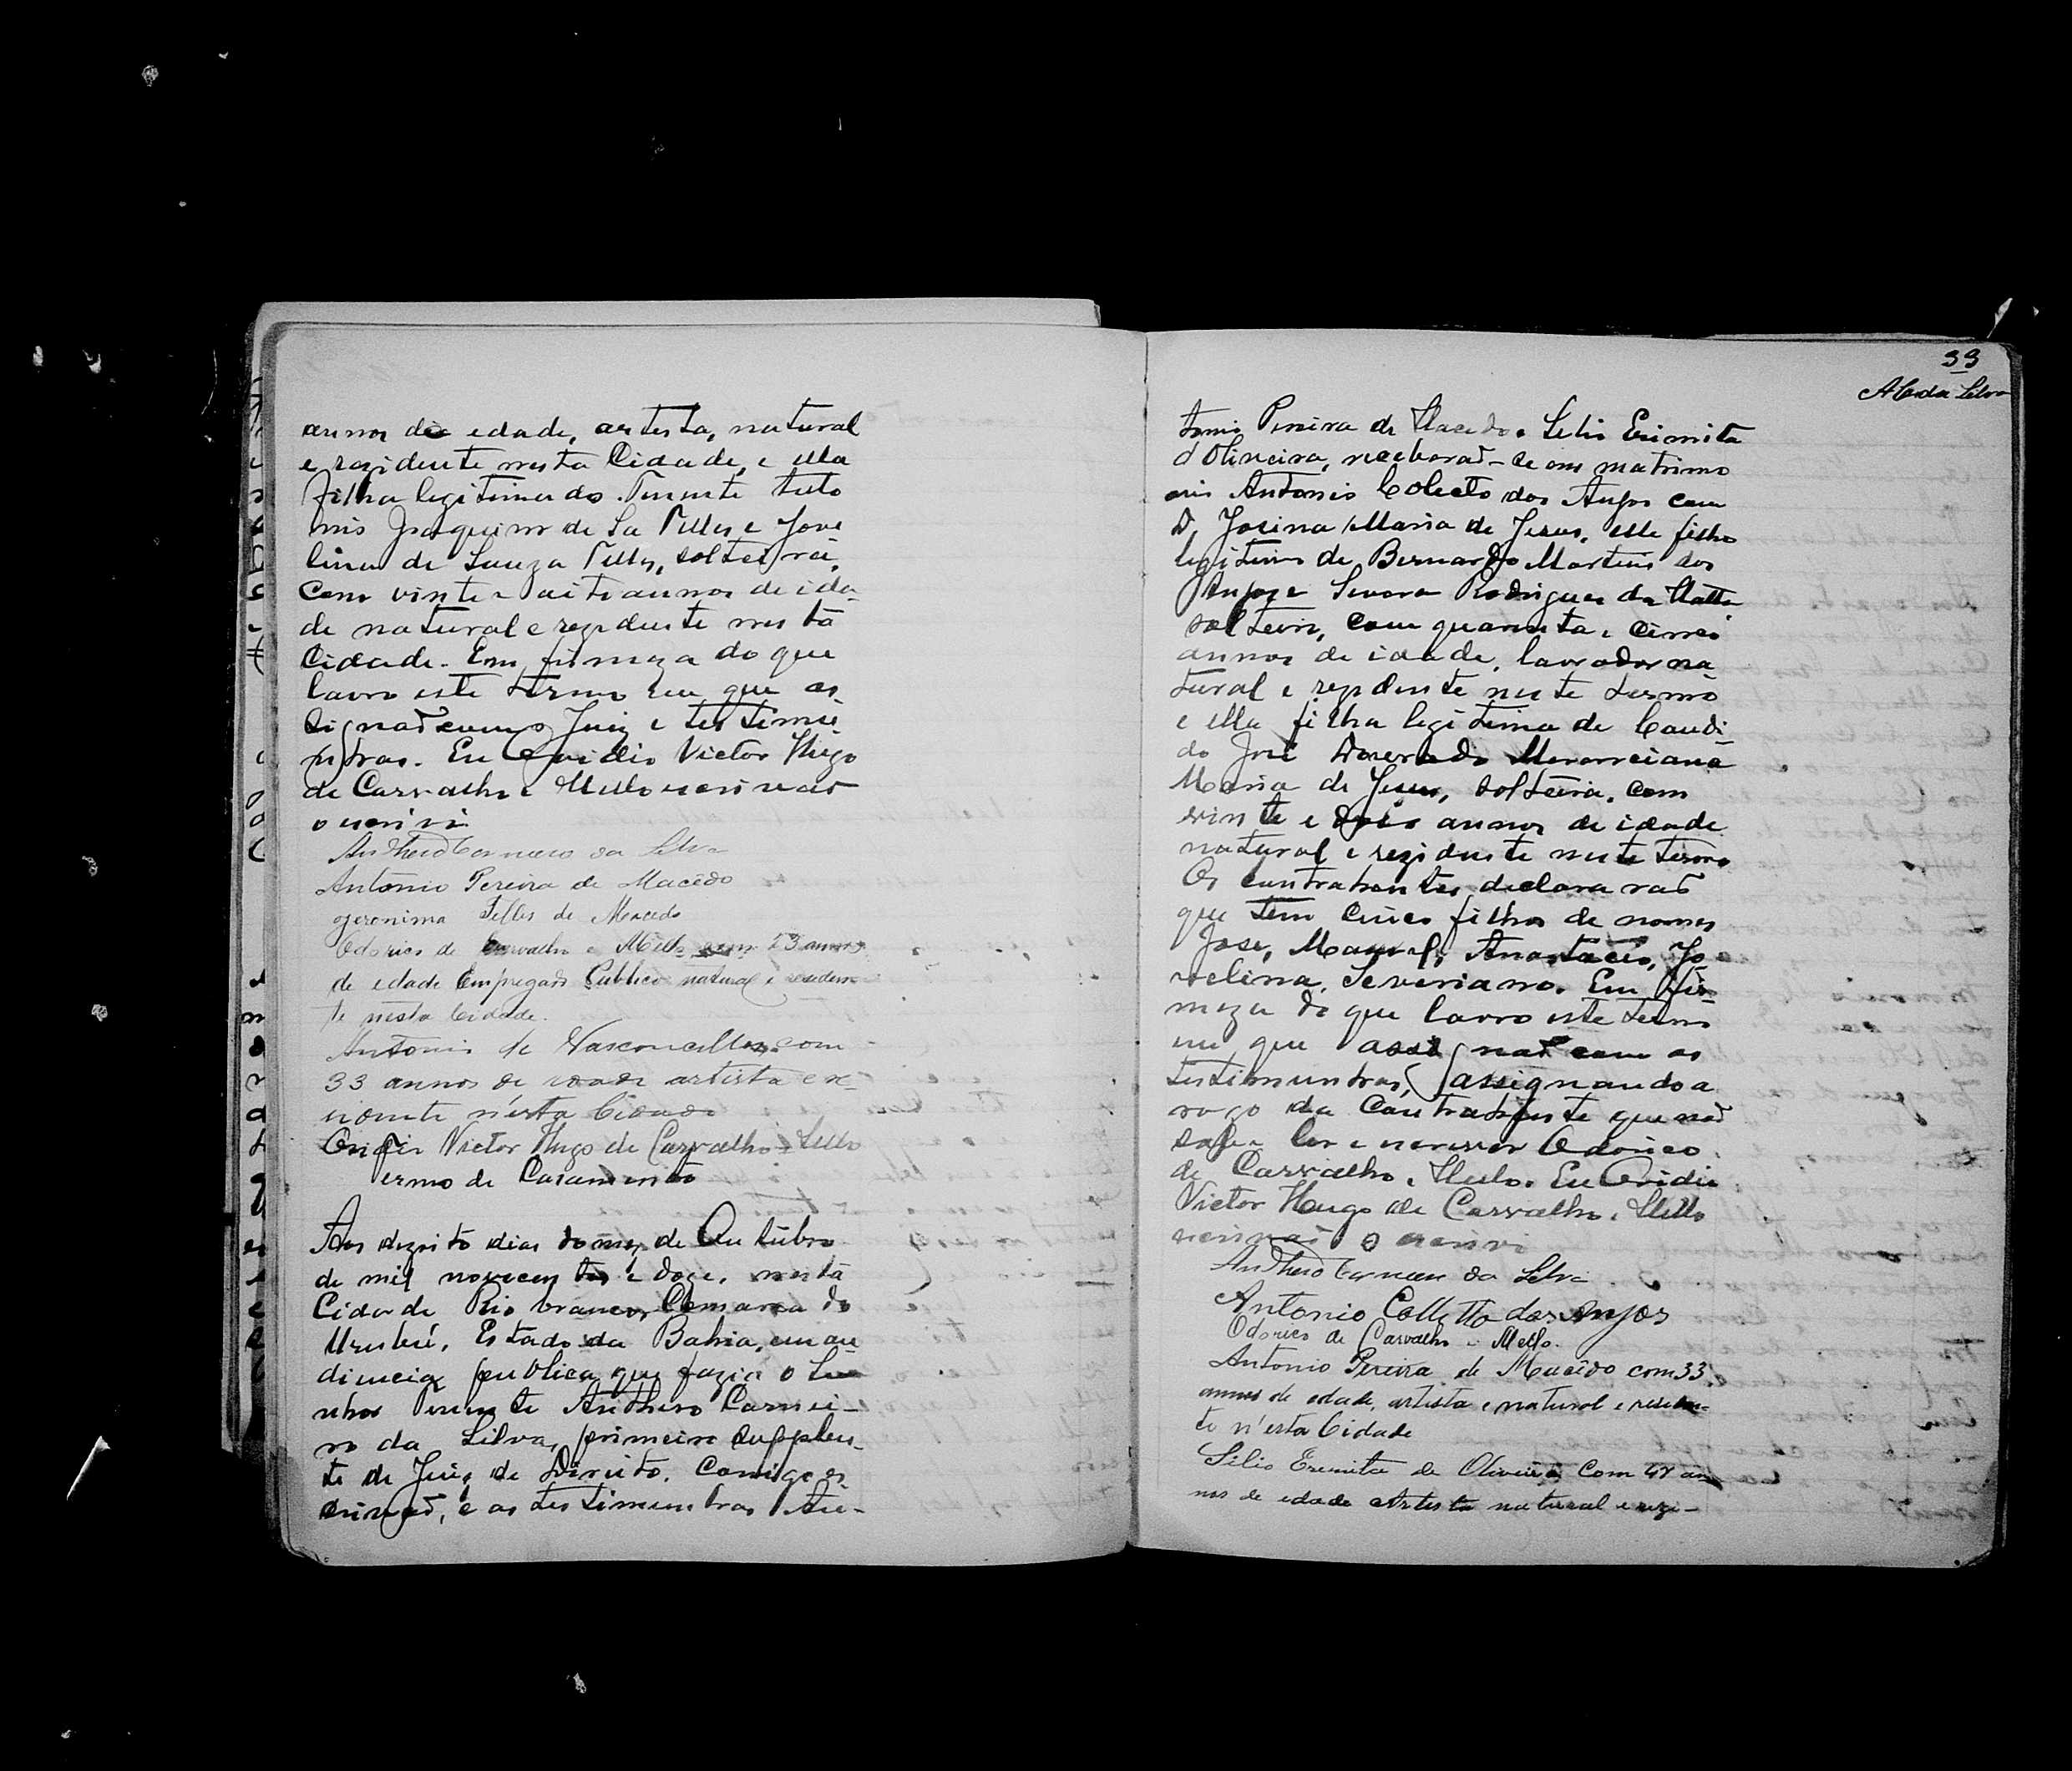 annos de edade, artista, natural
e rezidente nesta Cidade, e ella
filha legitima do Tenente
Joaquim de Sa Telles e Jove
lina de Souza Telles, solteira,
com vinte e oito annos de ida-
de natural e rezidente nesta
Cidade. Em firmeza do que
lavro este termo em que as
signaõ com o Juiz e testimu
nhas. Eu Ovidio Victor Hugo
de Carvalho e Mello escrivaõ
o escrivi
Anthero Carneiro da Silva
Antonio Pereira de Macêdo
Jeronima Telles de Macedo
Odorico de Carvalho e Mello com 23 annos
de edade Empregado Publico natural e residen
te nesta Cidade.
Antonio de Vasconcellos com
33 annos de idade artista e re-
zidente n'esta Cidade
Ovidio Victor Hugo de Carvalho e Mello
Termo de Casamento
Aos dezoito dias do mez de Outubro
de mil novecentos e doze, nesta
Cidade Rio branco, Comarca do
Urubú, Estado da Bahia, em au
diencia publica que fazia o Se
nhor Tenente Anthero Carnei-
ro da Silva, primeiro supplen-
te de Juiz de Direito, comigo es
crivaõ, e as testimunhas An-
33
A C da Silva
tonio Pereira de Macedo e Selio Erimita
d'Oliveira, receberaõ-se em matrimo
nio Antonio Colecto dos Anjos com
D. Josina Maria de Jesus, elle filho
legitimo de Bernardo Martins dos
Anjos e Severa Rodrigues da Matta
solteiro, com quarenta e cinco
annos de idade, lavrador na
tural e rezidente neste termo
e ella filha legitima de Candi-
do José Dourado
Maria de Jesus, solteira, com
vinte e dois annos de idade
natural e rezidente neste termo
Os contrahentes declararaõ
que tem cinco filhos de nomes
José, Manoel, Anastacio, Jo-
velina, Severiano. Em fir-
meza do que lavro este termo
em que assignaõ com as
testimunhas, assignando a
rogo da Contrahente que naõ
sabe ler e escrever Odorico
de Carvalho e Mello. Eu Ovidio
Victor Hugo de Carvalho e Mello
escrivaõ o escrivi
Anthero Carneiro da Silva
Antonio Colletto dos Anjos
Odorico de Carvalho e Mello.
Antonio Pereira de Macêdo com 33
annos de edade, artista e natural e residen-
te n'esta Cidade
Selio Eremita de Oliveira com an
nos de edade Artista natural e rezi-